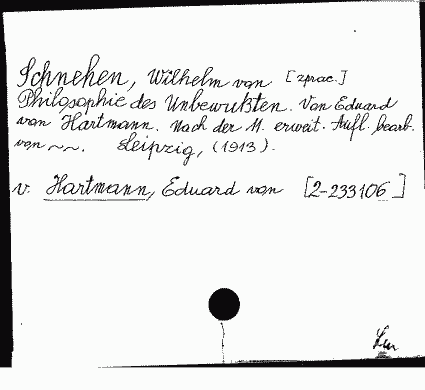 Schnehen, Wilhelm von [zprac.]
Philosophie des Unbewußten. Von Eduard
von Hartmann. Nach der 11. erweit. Aufl. bearb.
von ~~. Leipzig, (1913).
v. Hartmann, Eduard von [2-233106]